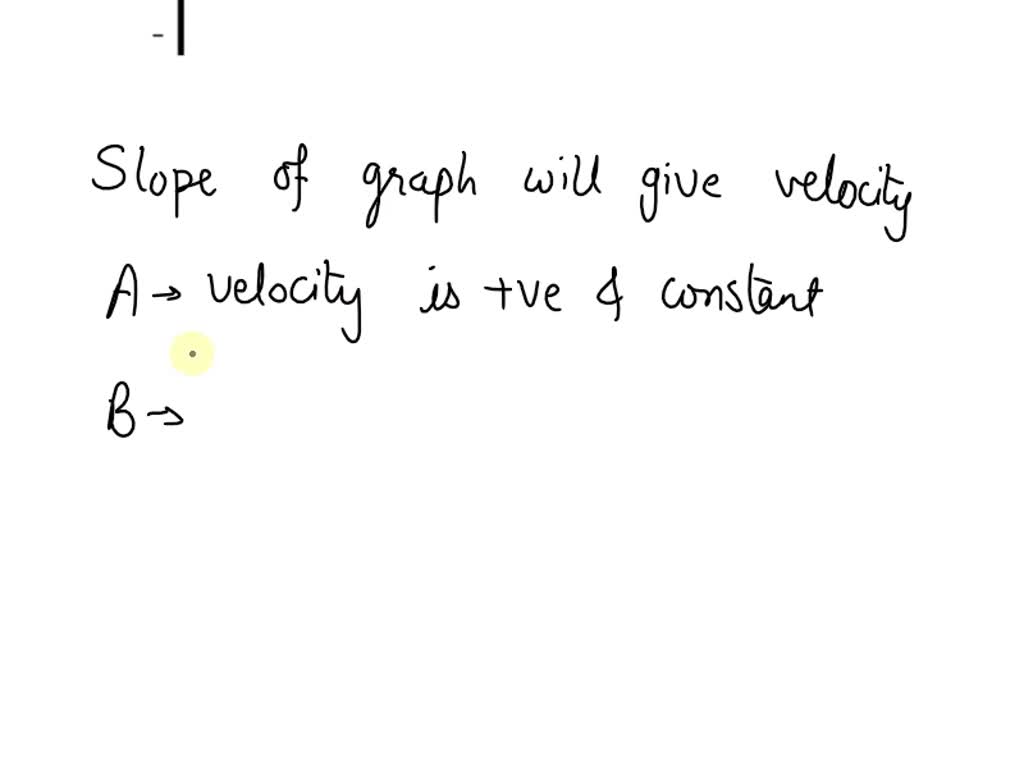 -
Slope of graph will give velocity
A → velocity is +ve & constant
B →